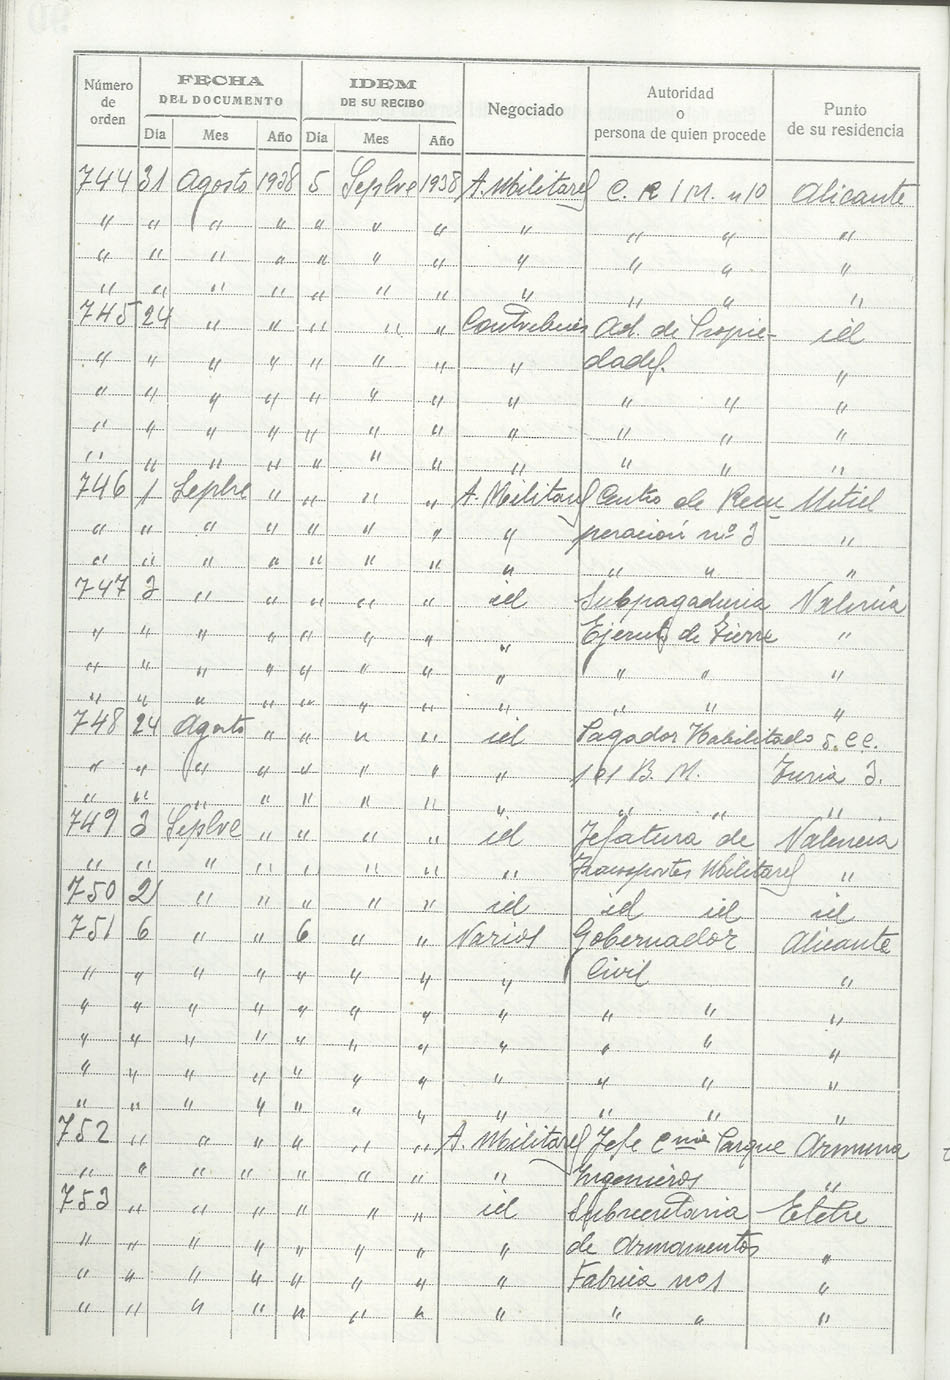 Número de orden FECHA DEL DOCUMENTO IDEM DE SU RECIBO Negociado Autoridad o persona de quien procede Punto de su residencia
Día Mes Año Día Mes Año
744 31 Agosto 1938 5 Sepbre 1938 A. Militares C. R I M. nº 10 Alicante
" " " " " " " " " " "
" " " " " " " " " " "
" " " " " " " " " " "
745 24 " " " " " Ad. de Propie- id
" " " " " " " " dades. "
" " " " " " " " " " "
" " " " " " " " " " "
" " " " " " " " " " "
746 1 Sepbre " " " " A. Militares Centro de Recu
" " " " " " " " peración nº 3 "
" " " " " " " " " " "
747 3 " " " " " id Subpagaduria Valencia
" " " " " " " " Ejercito de Tierra "
" " " " " " " " " " "
" " " " " " " " " " "
748 24 Agosto " " " " id Pagador Habilitado
" " " " " " " " B. M. Turia 3.
" " " " " " " " " " "
749 3 Sepbre " " " " id Jefatura de Valencia
" " " " " " " " Transportes Militares "
750 21 " " " " " id id id id
751 6 " " 6 " " Varios Gobernador Alicante
" " " " " " " " Civil "
" " " " " " " " " " "
" " " " " " " " " " "
" " " " " " " " " " "
" " " " " " " " " " "
752 " " " " " " A. Militares Jefe Parque
" " " " " " " " Ingenieros "
753 " " " " " " id Subsecretaria
" " " " " " " " de Armamentos "
" " " " " " " " Fabrica nº 1 "
" " " " " " " " " " "